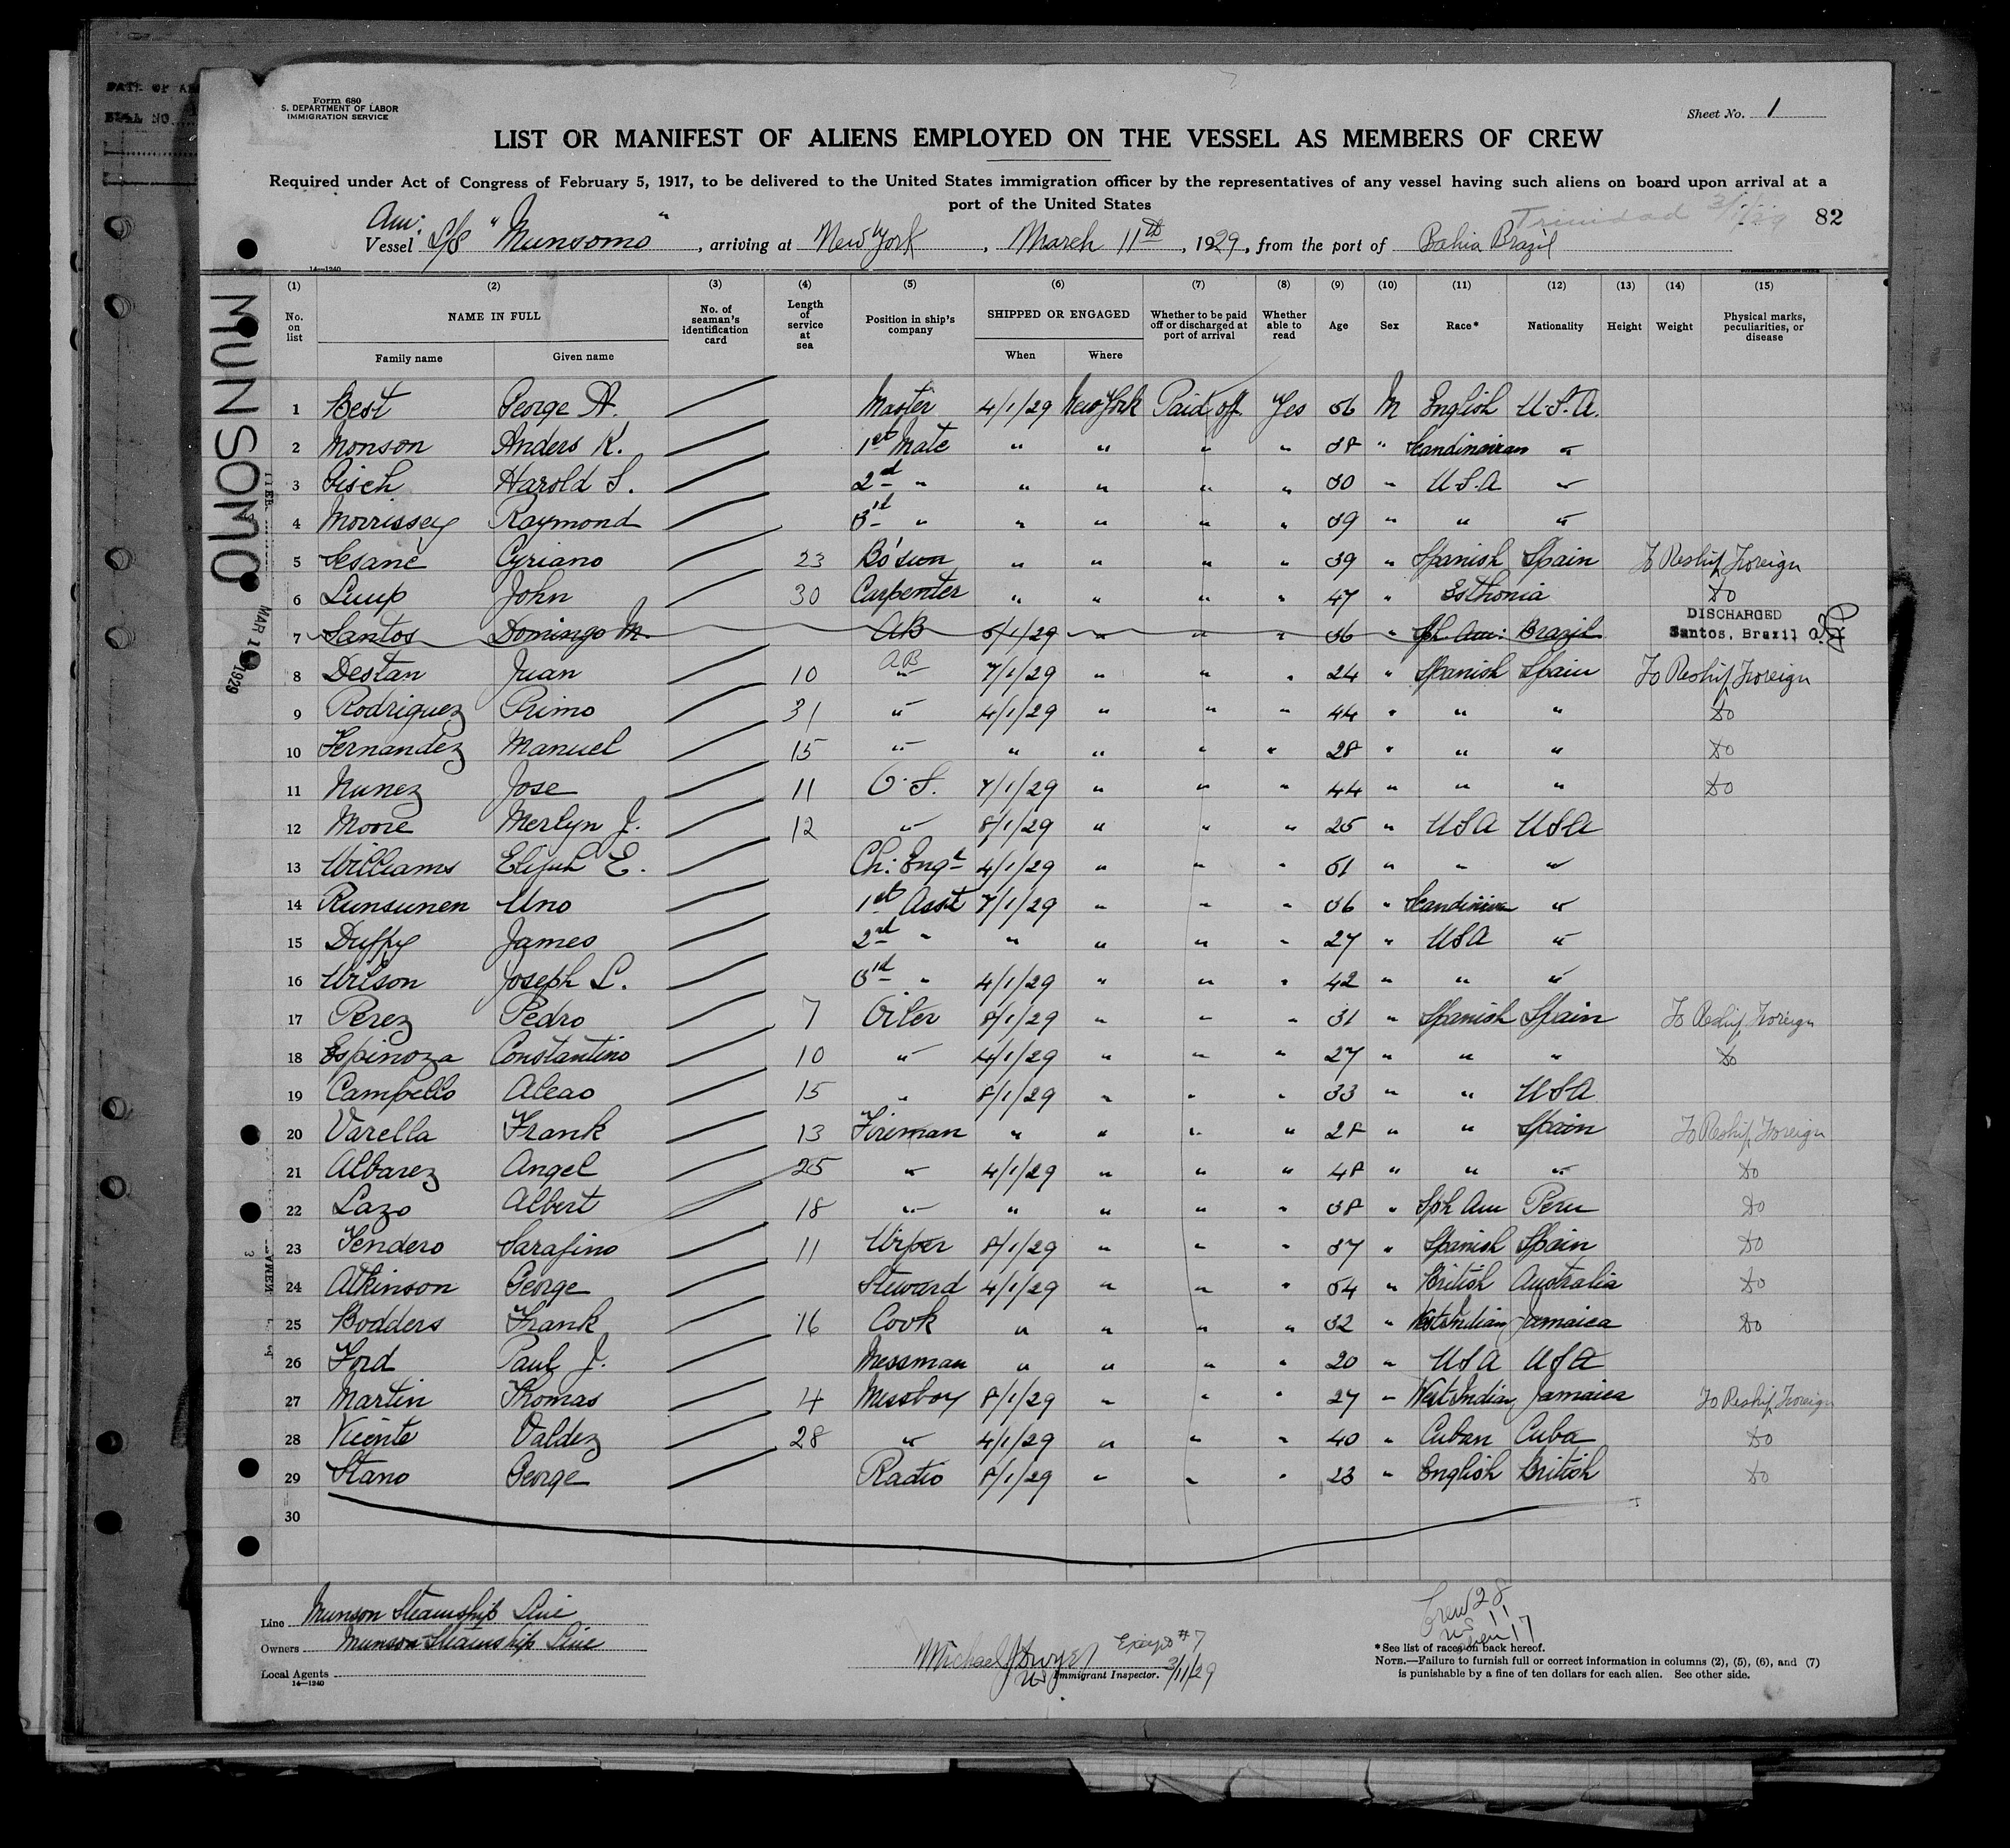 DATE OF AR
BILL NO.
Form 680
S. DEPARTMENT OF LABOR
IMMIGRATION SERVICE
Sheet No. 1
LIST OR MANIFEST OF ALIENS EMPLOYED ON THE VESSEL AS MEMBERS OF CREW
Required under Act of Congress of February 5, 1917, to be delivered to the United States immigration officer by the representatives of any vessel having such aliens on board upon arrival at a
port of the United States
Trinidad 3/1/29
82
Am:
Vessel S/S "Munsomo", arriving at New York, March 11th, 1929, from the port of Bahia Brazil
14—1240
MUNSOMO
MAR 1 1929
(1) (2) (3) (4) (5) (6) (7) (8) (9) (10) (11) (12) (13) (14) (15)
No. on list NAME IN FULL No. of seaman's identification card Length of service at sea Position in ship's company SHIPPED OR ENGAGED Whether to be paid off or discharged at port of arrival Whether able to read Age Sex Race* Nationality Height Weight Physical marks, peculiarities, or disease
Family name Given name When Where
1 Best George A. Master 4/1/29 New York Paid off Yes 56 M English U.S.A.
2 Monson Anders K. 1st Mate " " " " 38 " Scandinavian "
3 Fisch Harold S. 2nd " " " " " 30 " U.S.A "
4 Morrissey Raymond 3rd " " " " " 39 " " "
5 Sesane Cyriano 23 Bo'sun " " " " 39 " Spanish Spain To Reship Foreign
6 Luup John 30 Carpenter " " " " 47 " Esthonia Do
7 Santos Domingo M. AB 5/1/29 " " " 36 " Sph. Am: Brazil DISCHARGED Santos, Brazil
8 Destan Juan 10 AB " 7/1/29 " " " 24 " Spanish Spain To Reship Foreign
9 Rodriguez Primo 31 " 4/1/29 " " " 44 " " " Do
10 Fernandez Manuel 15 " " " " " 28 " " " Do
11 Nunez Jose 11 O.S. 7/1/29 " " " 44 " " " Do
12 Moore Merlyn J. 12 " 8/1/29 " " " 25 " USA USA
13 Williams Elijah E. Ch: Engr 4/1/29 " " " 51 " " "
14 Runsunen Uno 1st Asst 7/1/29 " " " 36 " Scandinavian "
15 Duffy James 2nd " " " " " 27 " USA "
16 Wilson Joseph L. 3rd " 4/1/29 " " " 42 " " "
17 Perez Pedro 7 Oiler 8/1/29 " " " 31 " Spanish Spain To Reship Foreign
18 Espinoza Constantino 10 " 4/1/29 " " " 27 " " " Do
19 Campello Aleao 15 " 8/1/29 " " " 33 " " USA
20 Varella Frank 13 Fireman " " " " 28 " " Spain To Reship Foreign
21 Albarez Angel 25 " 4/1/29 " " " 48 " " " Do
22 Lazo Albert 18 " " " " " 38 " Sph Am Peru Do
23 Tendero Sarafino 11 Wiper 8/1/29 " " " 37 " Spanish Spain Do
24 Atkinson George Steward 4/1/29 " " " 54 " British Australia Do
25 Bodders Frank 16 Cook " " " " 32 " West Indian Jamaica Do
26 Ford Paul J. Messman " " " " 20 " USA USA
27 Martin Thomas 4 Messboy 8/1/29 " " " 27 " West Indian Jamaica To Reship Foreign
28 Vicente Valdez 28 " 4/1/29 " " " 40 " Cuban Cuba Do
29 Stano George Radio 8/1/29 " " " 23 " English British Do
30
Line Munson Steamship Line
Owners Munson Steamship Line
Local Agents
14—1240
Michael J Dwyer Except #7
Immigrant Inspector. 3/11/29
Crew 28
US 11
17
*See list of races on back hereof.
NOTE.—Failure to furnish full or correct information in columns (2), (5), (6), and (7)
is punishable by a fine of ten dollars for each alien. See other side.